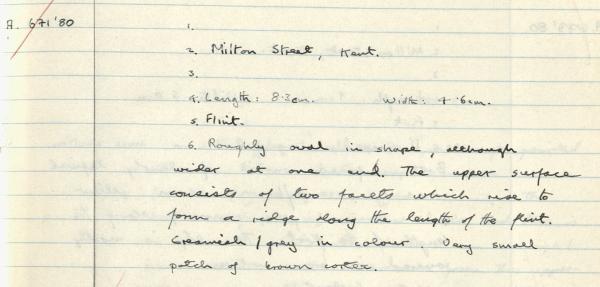 A. 671'80
1.
2. Milton Street, Kent.
3.
4. Length: 8.3cm. Width: 4.6cm.
5. Flint.
6. Roughly oval in shape, although
wider at one end. The upper surface
consists of two facets which rise to
form a ridge along the length of the flint.
Creamish/grey in colour. Very small
patch of brown cortex.